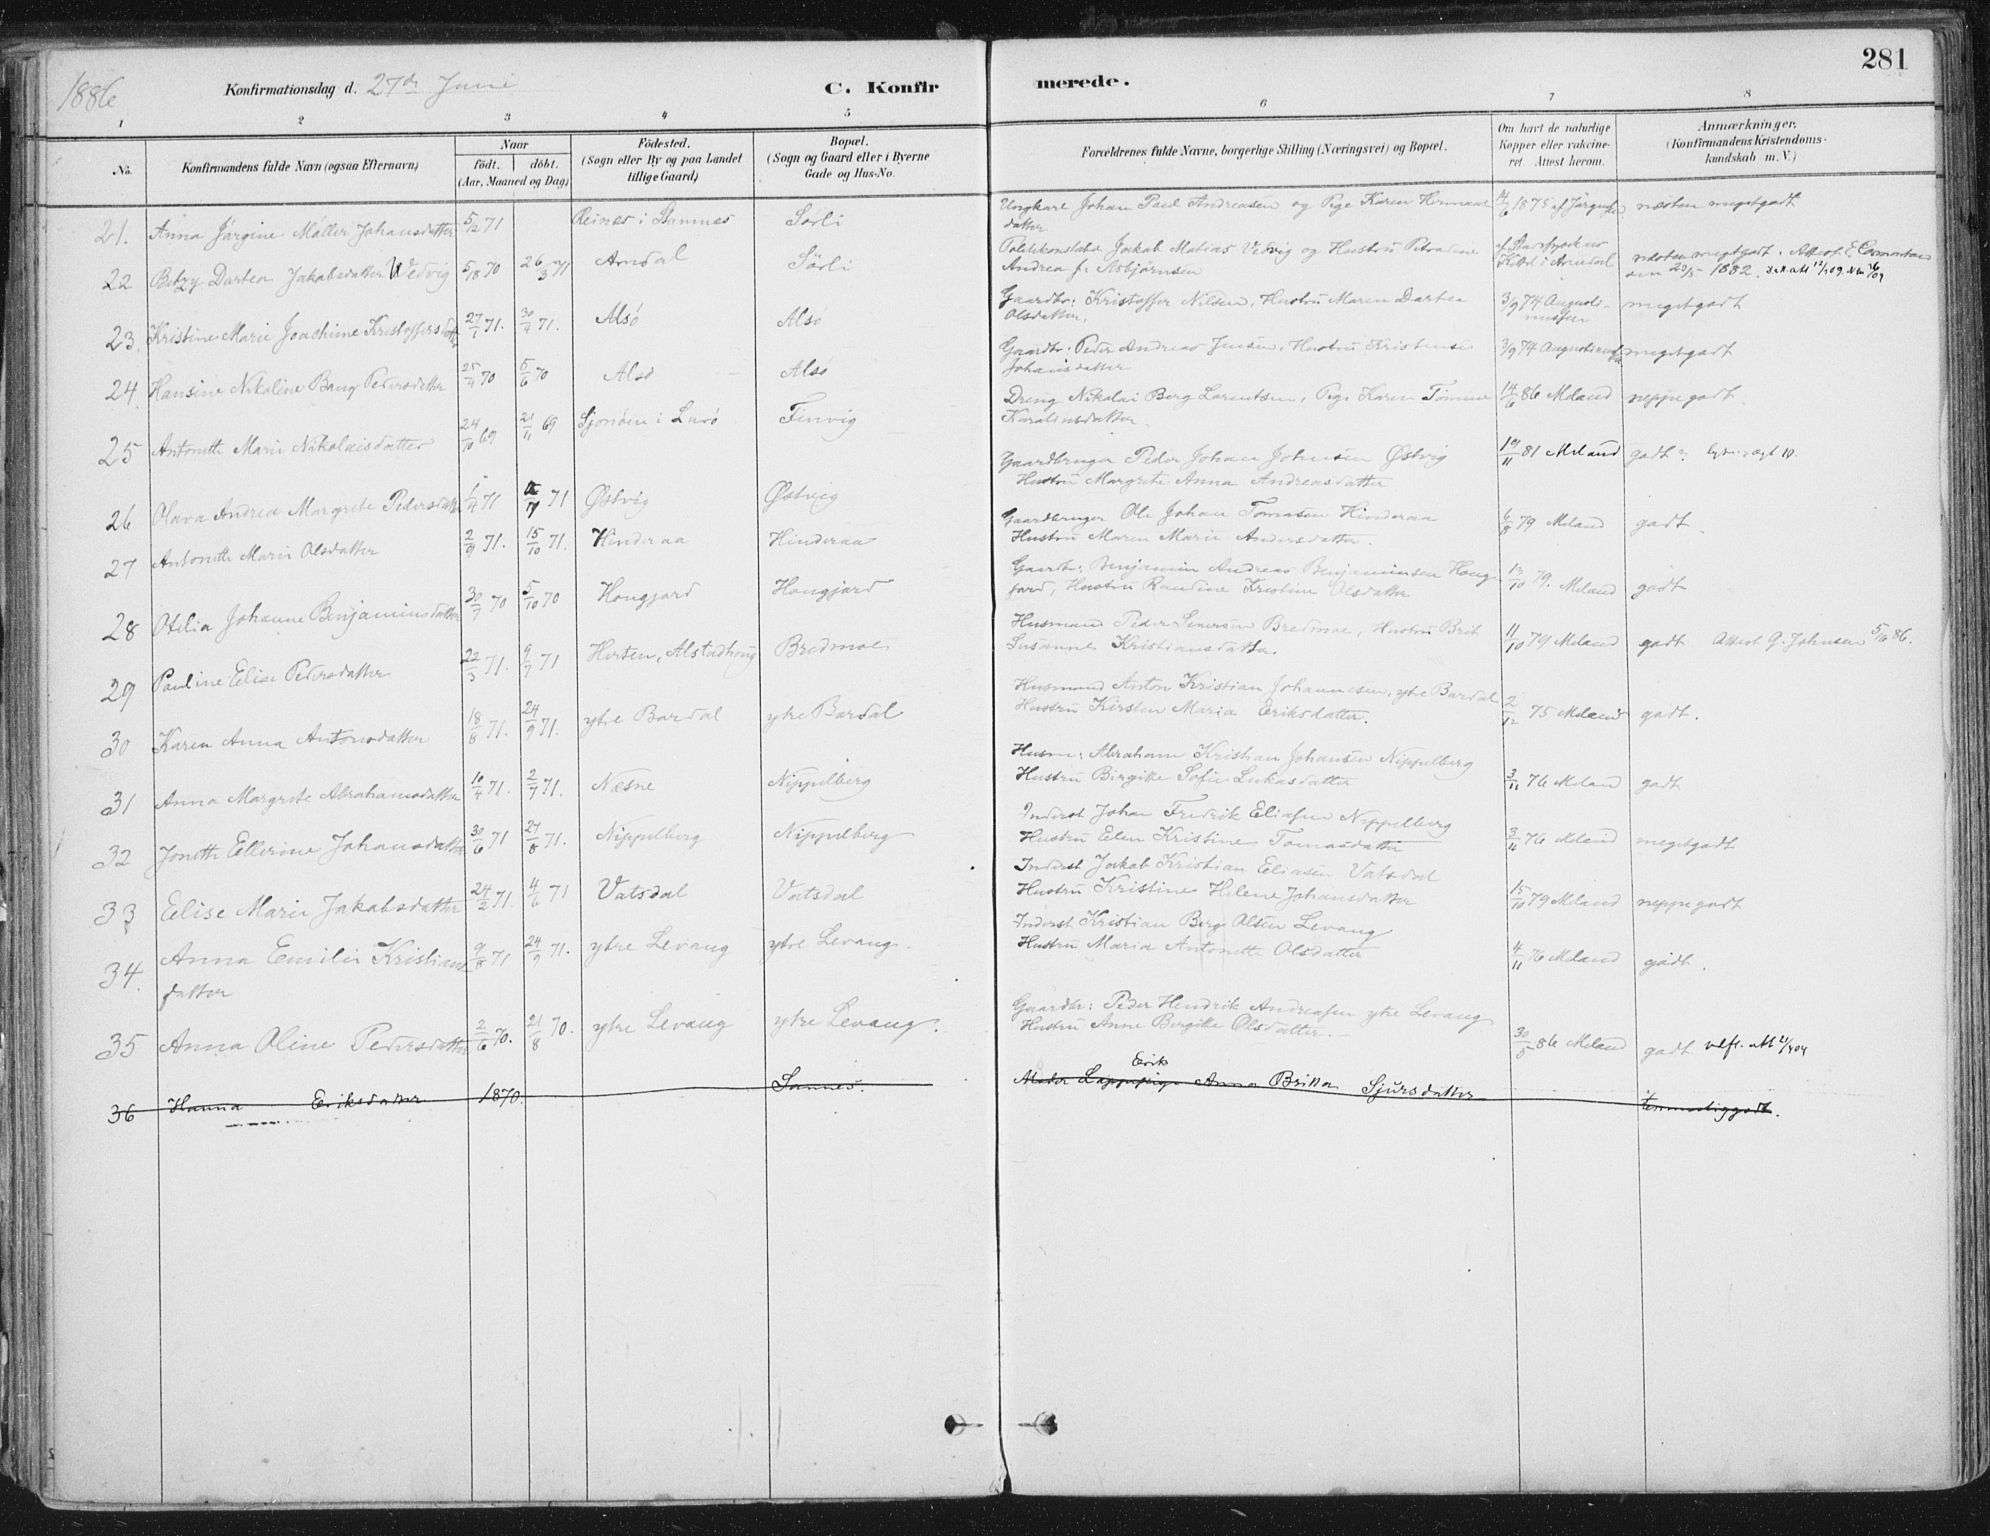 281
1886
Konfirmationsdag d. 27de Juni
C. Konfirmerede.
1 2 3 4 5 6 7 8
No.
Konfirmandens fulde Navn (ogsaa Efternavn)
Naar
födt. döbt.
(Aar, Maaned og Dag)
Födested.
(Sogn eller By og paa Landet
tillige Gaard)
Bopæl.
(Sogn og Gaard eller i Byerne
Gade og Hus-No.
Forældrenes fulde Navne, borgerlige Stilling (Næringsvei) og Bopæl.
Om havt de naturlige
Kopper eller vakcine-
ret. Attest herom.
Anmærkninger.
(Konfirmandens Kristendoms-
kundskab m. V.)
21. Anna Jörgine Möller Johansdatter 5/2 71 Reines i Stamnes Sörli Ungkarl Johan Paul Andreasen og Pige Karen
datter 1875 næsten megetgodt
22 Betzy Dartea Jakobsdatter Wedvig 5/8 70 26/3 71 Arndal Sörli Politikonstabel Jakob Matias Vedvig og Hustru Petradine
Andrea f. Asbjörnsen næsten megetgodt. Attest
1882.
23. Kristine Marie Joachime Kristoffersdatter 27/1 71. 30/4 71. Alsö Alsö Gaardbr: Kristoffer Nilsen, Hustru Maren Dartea
Olsdatter. 3/9 74 Augusti-
nussen megetgodt
24. Hansine Nikoline Bang Pedersdatter 25/4 70 5/6 70 Alsö Alsö Gaardbr: Peder Andreas Jensen, Hustru Kristense
Johansdatter 3/9 74 megetgodt
25 Antonette Marie Nikolaisdatter 24/10 69 21/11 69 Sjonöen i Lurö Finvig Dreng Nikolai Berg Larentsen, Pige Karen
Karolinsdatter. 14/6 86 Meland neppe godt.
26 Olava Andrea Margrete Pedersdatter 1/4 71 71 Østvig Østvig Gaardbruger Peder Johan Johnsen Østvig
Hustru Margrete Anna Andreasdatter 81 Meland godt
27 Antonette Marie Olsdatter 2/9 71. 15/10 71. Hinderaa Hinderaa Gaardbruger Ole Johan Tomasen Hinderaa
Hustru Maren Marie Andersdatter. 6/8 79 Meland godt.
28 Otelia Johanne Benjaminsdatter 30/7 70 5/10 70 Hougjord Hougjord Gaardbr: Benjamin Andreas Benjaminsen Houg-
jord, Hustru Randine Kristine Olsdatter 13/10 79. Meland godt
29 Pauline Elise Pedersdatter 22/3 71. 9/7 71 Herten, Alstadhoug Bredmoe Husmand Peder Bredmoe, Hustru Brit
Susanne Kristiansdatter. 11/10 79 Meland godt Attest G. Johnsen 5/10 86.
30 Karen Anna Antonsdatter 18/8 71. 24/9 71. ytre Bardal ytre Bardal Husmand Anton Kristian Johannesen, ytre Bardal
Hustru Kirsten Maria Eriksdatter. 2/12 75 Meland godt.
31 Anna Margrete Abrahamsdatter 10/4 71. 2/7 71. Næsne Nippelberg Husm: Abraham Kristian Johansen Nippelberg
Hustru Birgitte Sofie Lukasdatter 3/11 76 Meland godt
32 Jonette Ellerine Johansdatter 30/6 71 27/8 71. Nippelberg Nippelberg Inderst Johan Fredrik Eliasen Nippelberg
Hustru Elen Kristine Tomasdatter 3/11 76 Meland megetgodt
33 Eelise Marie Jakobsdatter 24/2 71. 4/6 71 Vatsdal Vatsdal Inderst Jakob Kristian Eliasen Vatsdal
Hustru Kristine Helene Johansdatter 15/10 79 Meland neppe godt
34. Anna Emilie Kristians
datter 9/8 71 24/9 71. ytre Levang ytre Levang. Inderst Kristian Berg Olsen Levang
Hustru Maria Antonette Olsdatter 4/11 76 Meland godt.
35 Anna Oline Pedersdatter 2/6 70. 21/8 70. ytre Levang ytre Levang. Gaardbr: Peder Hendrik Andreasen ytre Levang
Hustru Anne Birgitte Olsdatter. 86 Meland godt
36 Hanna Eriksdatter 1870. Sannes. Erik
Moder Anna Britta Sjursdatter temmeliggodt.